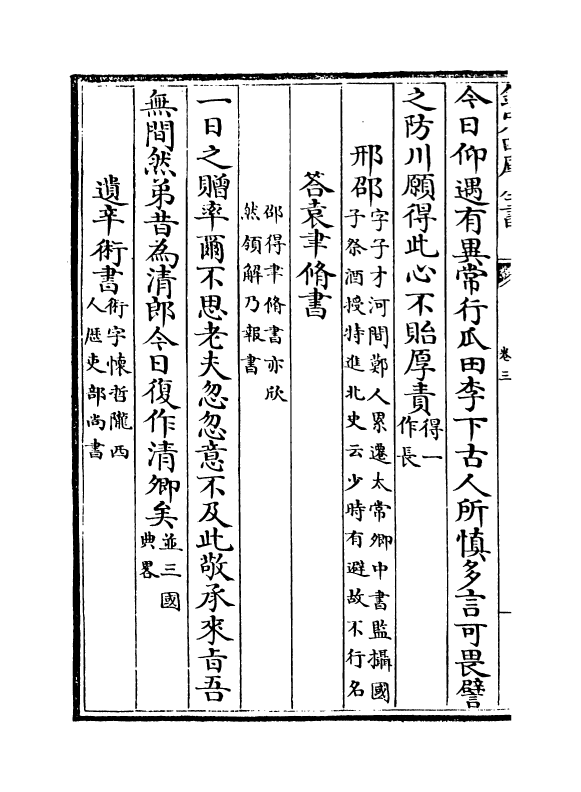 欽定四庫全書
卷三
今日仰遇有異常行瓜田李下古人所慎多言可畏譬
之防川願得此心不貽厚責得一
作長
邢邵字子才河間鄭人累遷太常卿中書監攝國
子祭酒授特進北史云少時有避故不行名
答袁聿脩書
邵得聿脩書亦欣
然領解乃報書
一日之贈率爾不思老夫忽忽意不及此敬承來㫖吾
無間然弟昔為清郎今日復作清卿矣並三國
典畧
遺辛術書術字懐哲隴西
人歴吏部尚書